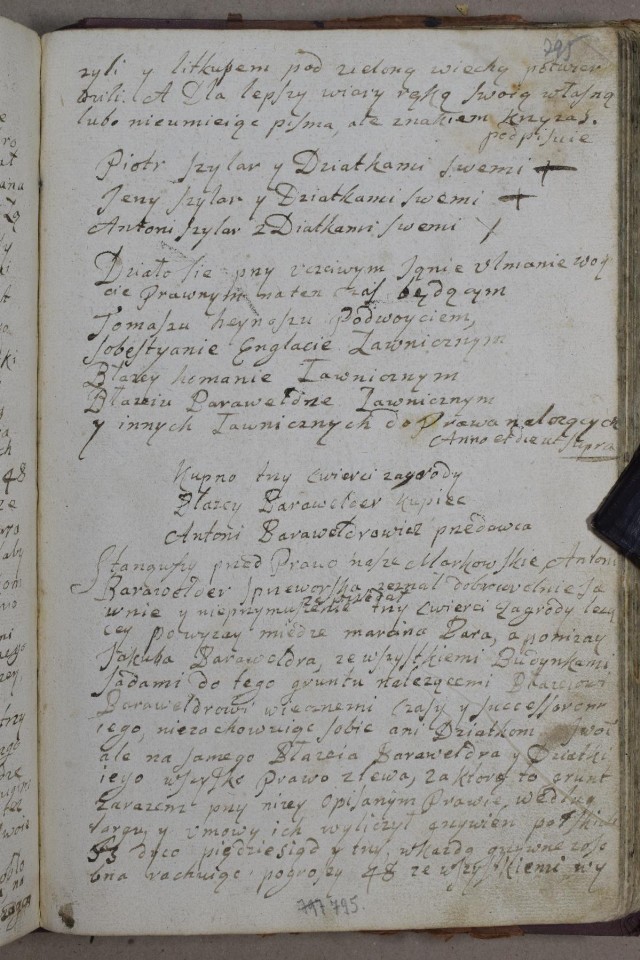 795
zyli y litkupem pod zieloną wiechą potwier
dzili. A Dla lepszy wiary ręką swoią własną
lubo nieumieiąc pisma, ale znakiem krzyża S.
podpisuie
Piotr Szylar y Dziatkami swemi +
Jerzy Szylar y Dziatkami swemi +
Antoni Szylar z Diatkami swemi +
Działo sie przy uczciwym Ignie Ulmanie woy
cie Prawnym na ten czas będącym
Tomaszu heynoszu Podwoyciem,
Sobestyanie Englacie Ławnicznym
Błazey homanie Ławnicznym
Błazeiu Barawełdrze Ławnicznym
y innych Ławnicznych do Prawa nalozących
Anno et die ut supra
Kupno trzy cwierci zagrody
Błazey Barawełder Kupiec
Antoni Barawełdrowicz przedawca
Stanąwszy przed Prawo nasze Markowskie Antoni
Barawołder spzeworska zeznał dobrowolnie ja
wnie y nieprzymuszenie ze przedał trzy cwierci zagrody lezą
cey powyzay miedze marcina Bara, a ponizay
Jakuba Barawełdra, ze wszystkiemi Budynkami
sadami do tego gruntu nalezącemi Błazeiowi
Barawełdrowi wiecznemi czasy y successorom
iego, niezachowuiąc sobie ani Dziatkom swoi
ale na samego Błazeia Barawełdra y Dziatki
iego wszytko Prawo zlewa, za ktory to grunt
zarazem przy nizey opisanym Prawie, według
targu y umowy ich wyliczył grzywien polskich
53 dyco pięcdziesiąd y trzy, w kazdą grzywne zoso
bna rachuiąc pogroszy 48 ze wszystkiemi wy
797 795.